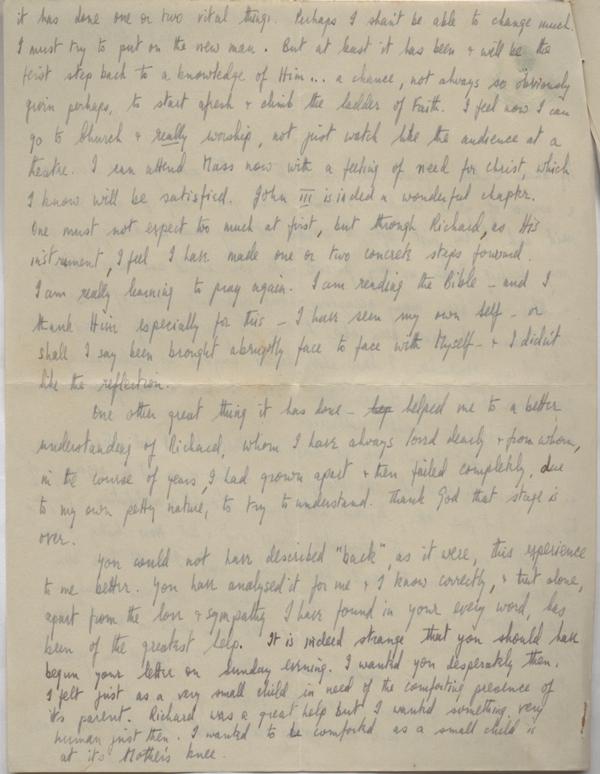 it has done one or two vital things. Perhaps I shan't be able to change much.
I must try to put on the new man. But at least it has been & will be the
first step back to a knowledge of Him... a chance, not always so obviously
given perhaps, to start afresh & climb the ladder of Faith. I feel now I can
go to Church & really worship, not just watch like the audience at a
theatre. I can attend Mass now with a feeling of need for Christ, which
I know will be satisfied. John III is indeed a wonderful chapter.
One must not expect too much at first, but through Richard, as His
instrument, I feel I have made one or two concrete steps forward.
I am really learning to pray again. I am reading the Bible - and I
thank Him especially for this - I have seen my own self - or
shall I say been brought abruptly face to face with myself - & I didn't
like the reflection.
One other great thing it has done - helped me to a better
understanding of Richard, whom I have always loved dearly & from whom,
in the course of years, I had grown apart & then failed completely, due
to my own petty nature, to try to understand. Thank God that stage is
over.
You could not have described "back", as it were, this experience
to me better. You have analysed it for me & I know correctly, & that alone,
apart from the love & sympathy I have found in your every word, has
been of the greatest help. It is indeed strange that you should have
begun your letter on Sunday evening. I wanted you desperately then.
I felt just as a very small child in need of the comforting presence of
it's parent. Richard was a great help but I wanted something very
human just then. I wanted to be comforted as a small child is
at it's Mother's knee.